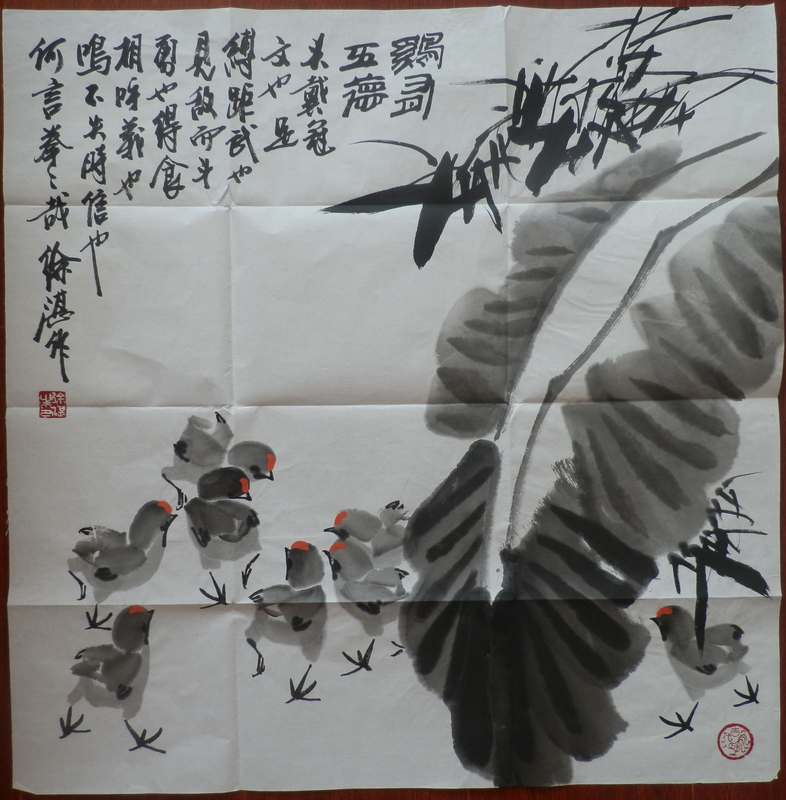 鷄有
五德
头戴冠
文也足
缚距武也
見敌而斗
勇也得食
相呼義也
鳴不失時信也
何言拳〻哉 徐湛作